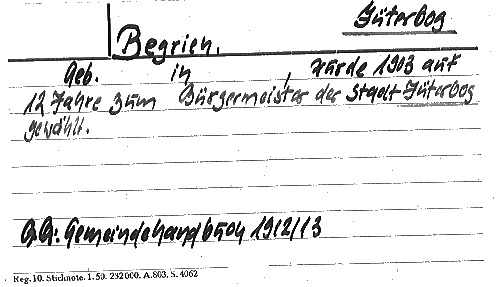 Jüterbog
Begrien.
Geb. in , wurde 1903 auf
12 Jahre zum Bürgermeister der Stadt Jüterbog
gewählt.
Qu: Gemeindehandbuch 1912/13
Reg. 10. Stichnote. 1. 50. 232000. A. 803. S. 4062